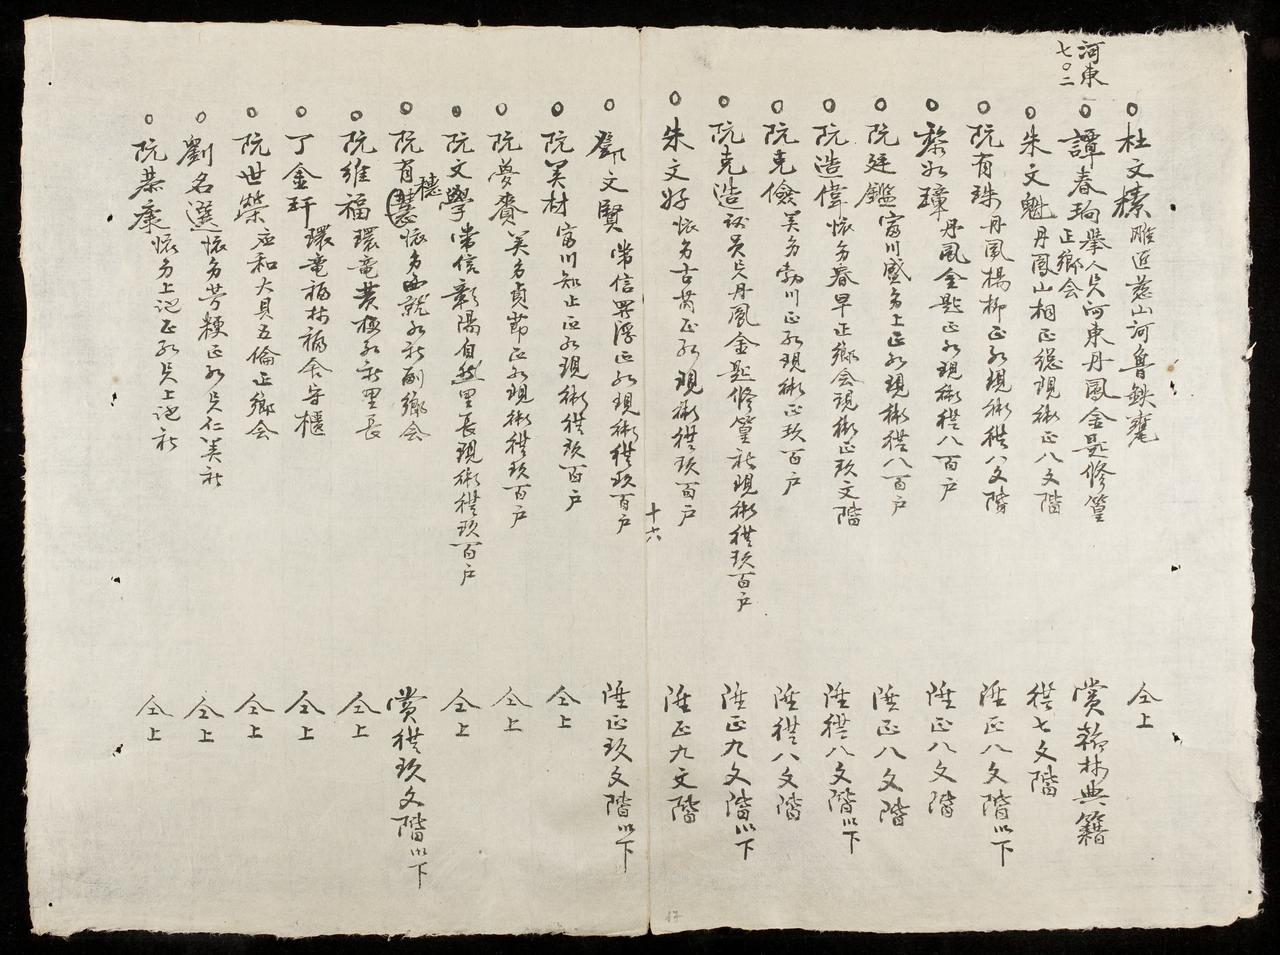 河東
七〇二
杜文榛 雎匠慈山河魯鉄
仝上
譚春珣 舉人貝河東丹鳳金匙修篁
正鄉会
賞翰林典籍
朱文魁 丹鳳山相正總現衔正八文階
從七文階
阮有珠 丹鳳楊柳正永現衔從八文階
陞正八文階以下
黎永璋 丹鳳金匙正永現衔從八百户
陞正八文階
阮廷鑑 富川盛多上正永現衔從八百户
陞正八文階
阮造偉 懷多春早正鄉会現衔正玖文階
陞從八文階以下
阮克儉 美多勃川正永現衔正玖百户
陞從八文階
阮克造 丹鳳金匙修篁社現衔從玖百户
陞正九文階以下
朱文好 懷多古芮正永現衔從玖百户
陞正九文階
十六
鄧文賢 常信 浮正永現衔從玖百户
陞正玖文階以下
阮美材 富川知止正永現衔從玖百户
仝上
阮夢賚 美多貞節正永現衔從玖百户
仝上
阮文學 常信彰陽自然里長現衔從玖百户
仝上
阮有穗 懷多 永社副鄉会
賞從玖文階以下
阮維福 環竜黄梅永社里長
仝上
丁金玕 環竜福林福舍守櫃
仝上
阮世榮 应和大貝五倫正鄉会
仝上
劉名選 懷多芳粳正永貝仁美社
仝上
阮恭康 懷多上池正永貝上池社
仝上
17